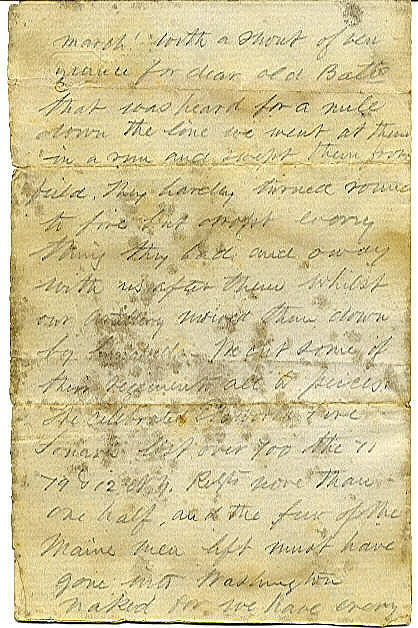 march! with a shout of ven
geance for dear old Balto
that was heard for a mile
down the line we went at them
in a run and swept them from
field. They hardly turned round
to fire but dropt every
thing they had and away
with us after them whilst
our artillery mowed them down
by hundreds. We cut some of
their regiments all to pieces.
The celebrated Fire
Zouaves lost over 700 the 71
79 & 12 N.Y. Regts more than
one half, and the few of the
Maine men left must have
gone into Washington
naked for we have every